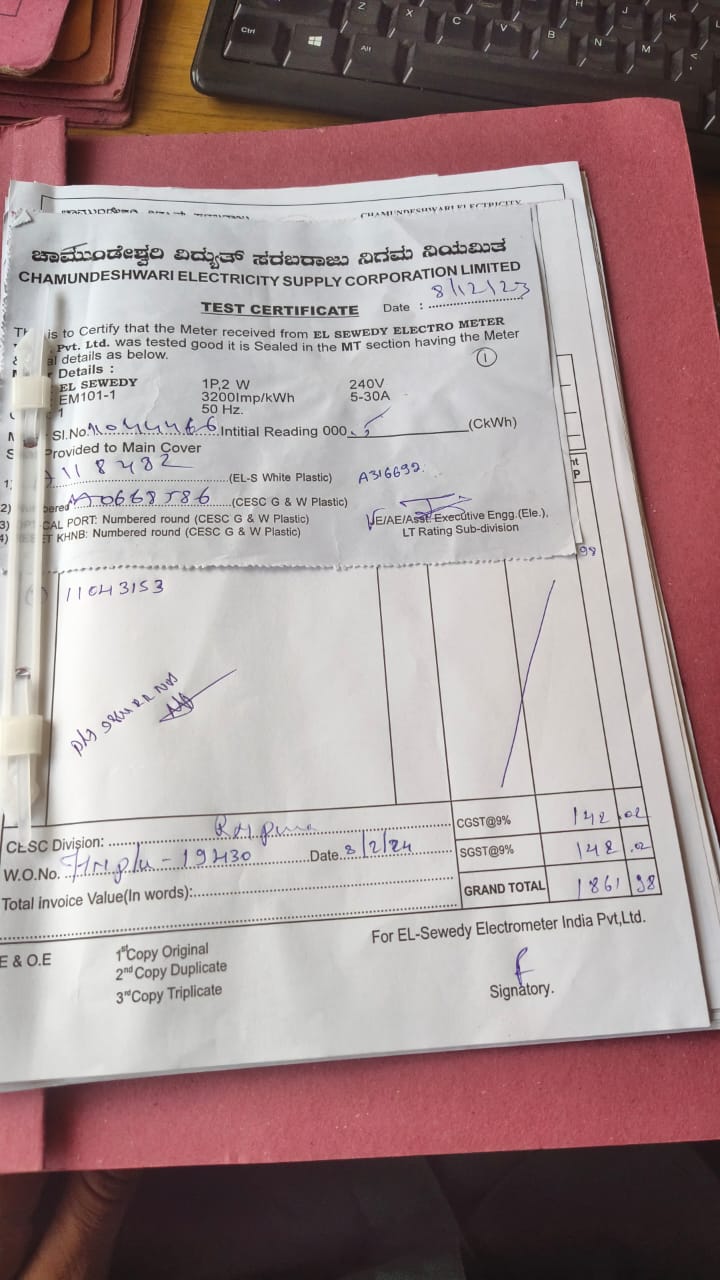 ಚಾಮುಂಡೇಶ್ವರಿ ವಿದ್ಯುತ್ ಸರಬರಾಜು ನಿಗಮ ನಿಯಮಿತ
CHAMUNDESHWARI ELECTRICITY SUPPLY CORPORATION LIMITED
TEST CERTIFICATE Date : 8/12/23
is to Certify that the Meter received from EL SEWEDY ELECTRO METER
Pvt. Ltd. was tested good it is Sealed in the MT section having the Meter
details as below. 1
Details :
EL SEWEDY 1P,2 W 240V
EM101-1 3200Imp/kWh 5-30A
1 50 Hz.
Sl.No. 11044466 Intitial Reading 000 (CkWh)
Provided to Main Cover
118482 (EL-S White Plastic) A316692
A0668586 (CESC G & W Plastic)
CAL PORT: Numbered round (CESC G & W Plastic) E/AE/Asst. Executive Engg.(Ele.),
KHNB: Numbered round (CESC G & W Plastic) LT Rating Sub-division
98
11043153
CESC Division: CGST@9% 142.02
W.O.No. 19430 Date 8/2/24 SGST@9% 142.02
Total invoice Value(In words): GRAND TOTAL 1861 98
For EL-Sewedy Electrometer India Pvt,Ltd.
E & O.E 1st Copy Original
2nd Copy Duplicate
3rd Copy Triplicate Signatory.